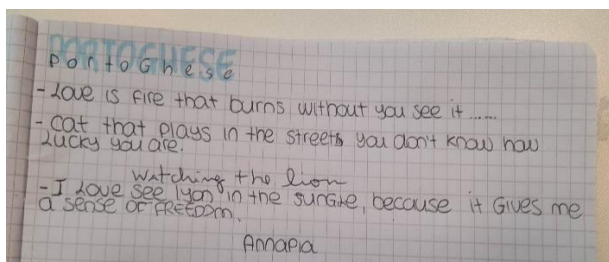 PORTOGHESE
PortoGhese
- Love is fire that burns without you see it ......
- cat that plays in the streets you don't know how
Lucky you are.
watching the lion
- I Love see lyon in the sungle, because it Gives me
a sense of FREEDOM.
Annapia